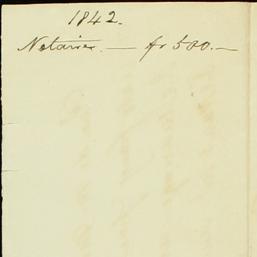 1842.
Notarier. — fr 500.—